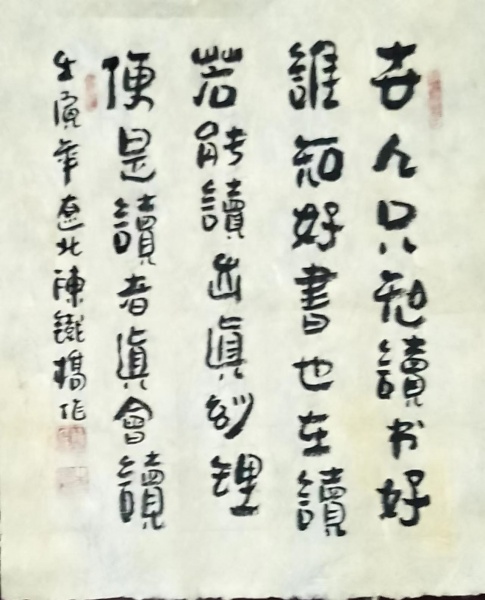 世人只知讀书好
誰知好書也在讀
若能讀出真妙理
便是讀者真會讀
壬寅年遼北陳鐵橋作